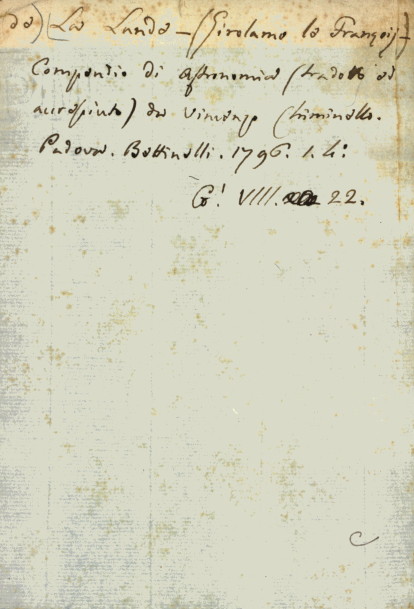 de) (La Lande - (Girolamo le Françoij-)
Compendio di Astronomia (tradotto ed
accresciuto) da Vincenzo Chiminello.
Padova. Bettinelli. 1796. 1. 4:
G! VIII. 22.